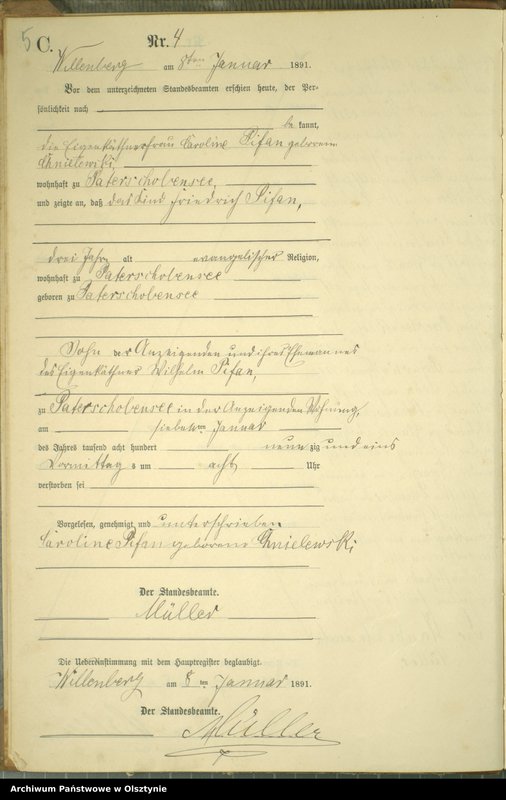 5 C. Nr. 4
Willenberg am 8ten Januar 1891.
Vor dem unterzeichneten Standesbeamten erschien heute, der Per-
sönlichkeit nach
be kannt,
die Eigenkäthnerfrau Caroline Pifan geborene
Chmielewski,
wohnhaft zu Paterschobensee,
und zeigte an, daß das Kind Friedrich Pifan,
drei Jahre alt evangelischer Religion,
wohnhaft zu Paterschobensee
geboren zu Paterschobensee
Sohn der Anzeigenden und ihres Ehemannes
des Eigenkäthner Wilhelm Pifan,
zu Paterschobensee in der Anzeigenden Wohnung,
am siebenten Januar
des Jahres tausend acht hundert neun zig und eins
Vormittag s um acht Uhr
verstorben sei
Vorgelesen, genehmigt und unterschrieben
Caroline Pifan geborene
Der Standesbeamte.
Müller
Die Uebereinstimmung mit dem Hauptregister beglaubigt.
Willenberg am 8 ten Januar 1891.
Der Standesbeamte.
Müller
Archiwum Państwowe w Olsztynie